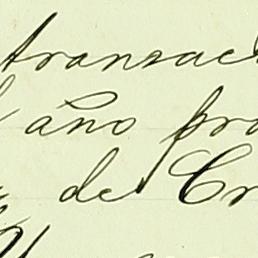 transac
año pro
de Cr